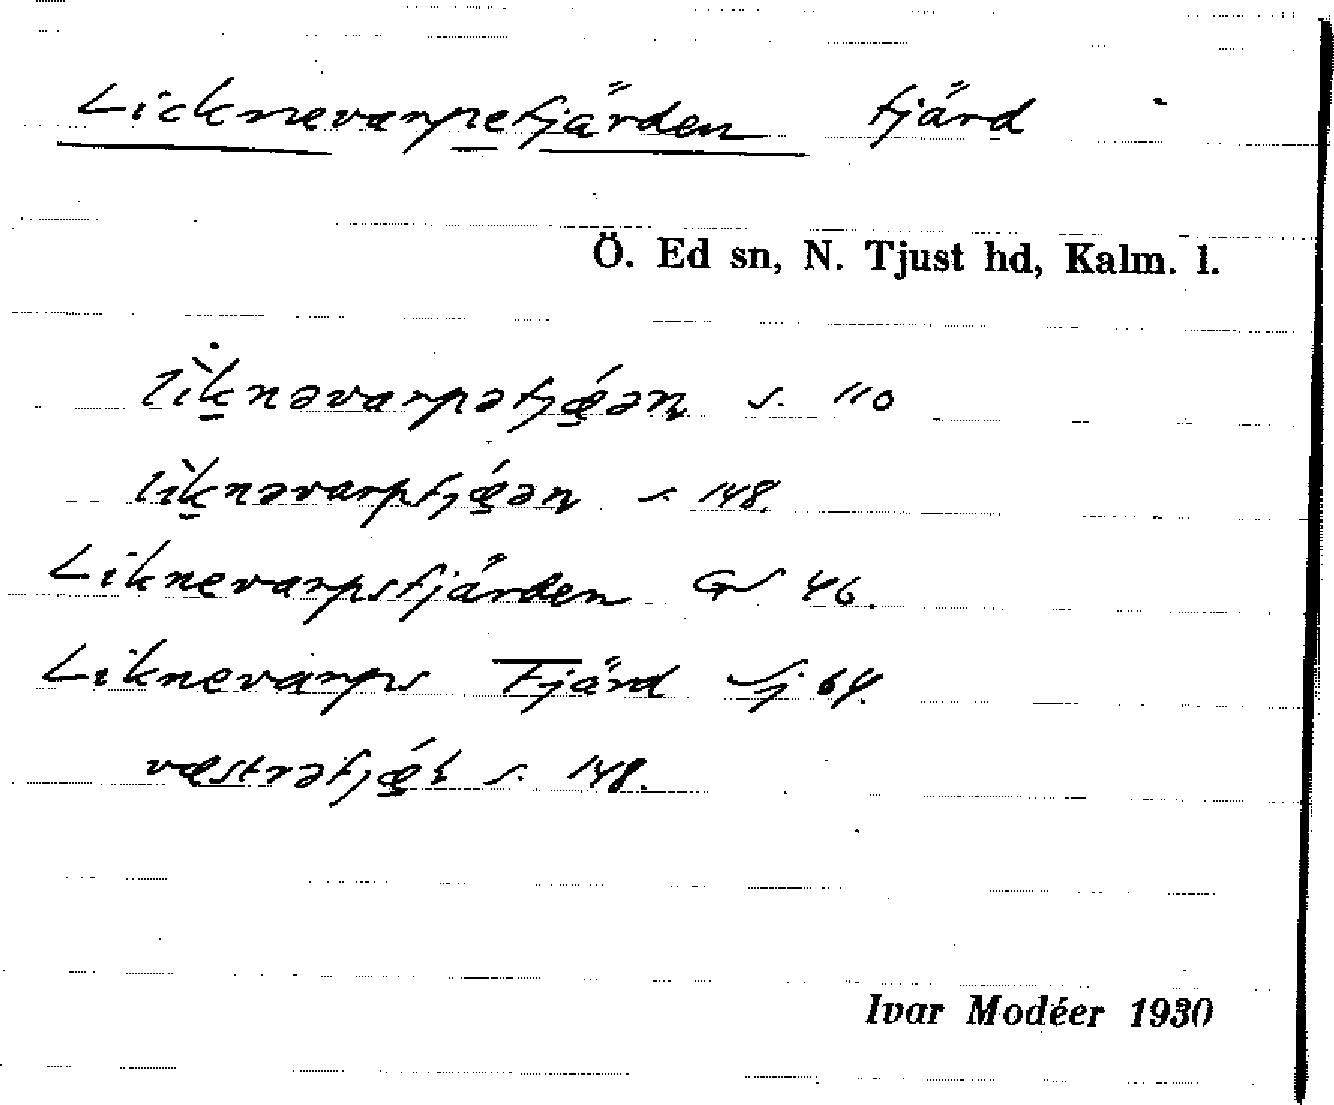 Licknevarpefjärden fjärd
Ö. Ed sn, N. Tjust hd, Kalm. l.
lìknəvarpəfjǽən s. 110
lìknəvarpfjǽən s. 148.
Liknevarpsfjärden GS 46.
Liknevarps Fjärd Sj 64.
væstrəfjǽḷ s. 148.
Ivar Modéer 1930